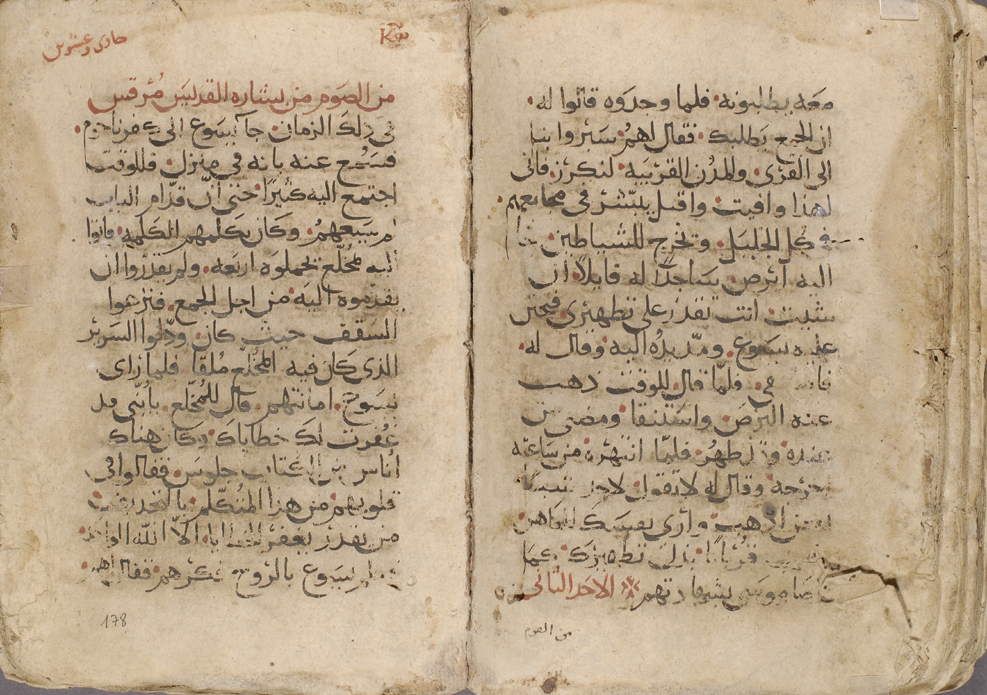 معه يطلبونه فلما وجدوه قالوا له
ان الجمع يطلبك فقال لهم سيروا بنا
الى القرى والمدن القريبه لنكرز فاني
لهذا وافيت واقبل يبشر في مجامعهم
في كل الجليل ويخرج للشياطين
اليه ابرص ساجدا له قايلا ان
شيت انت تقدر على تطهيري فتحنن
عليه يسوع ومد يده اليه وقال له
فلما قال للوقت دهب
عنه البرص واستنقا ومضى من
عنده طهر فلما انتهره من ساعته
اخرجه وقال له لا تقول لاحد
ادهب وارى نفسك للكاهن
قربانا بدل تطهيرك كما
موسى بشهادتهم الاحد الثاني
من الصوم
حادى وعشرين
من الصوم من بشاره القديس مرقس
في ذلك الزمان جا يسوع الى كفرناحوم
فسمع عنه بانه في منزل فللوقت
اجتمع اليه كثيرا حتى ان قدام الباب
لم يسعهم وكان يكلمهم الكلمه فاتوا
اليه بمخلع يحملوه اربعه ولم يقدروا ان
يقدموه اليه من اجل الجمع فنزعوا
السقف حيث كان ودلوا السرير
الذي كان فيه المخلع ملقا فلما راى
يسوع امانتهم قال للمخلع يا بني قد
غفرت لك خطاياك وكان هناك
اناس من الكتاب جلوس فقالوا في
قلوبهم من هذا المتكلم بالتجديف
من يقدر يغفر الخطايا الا الله الواحد
يسوع بالروح فكرهم فقال لهم
178